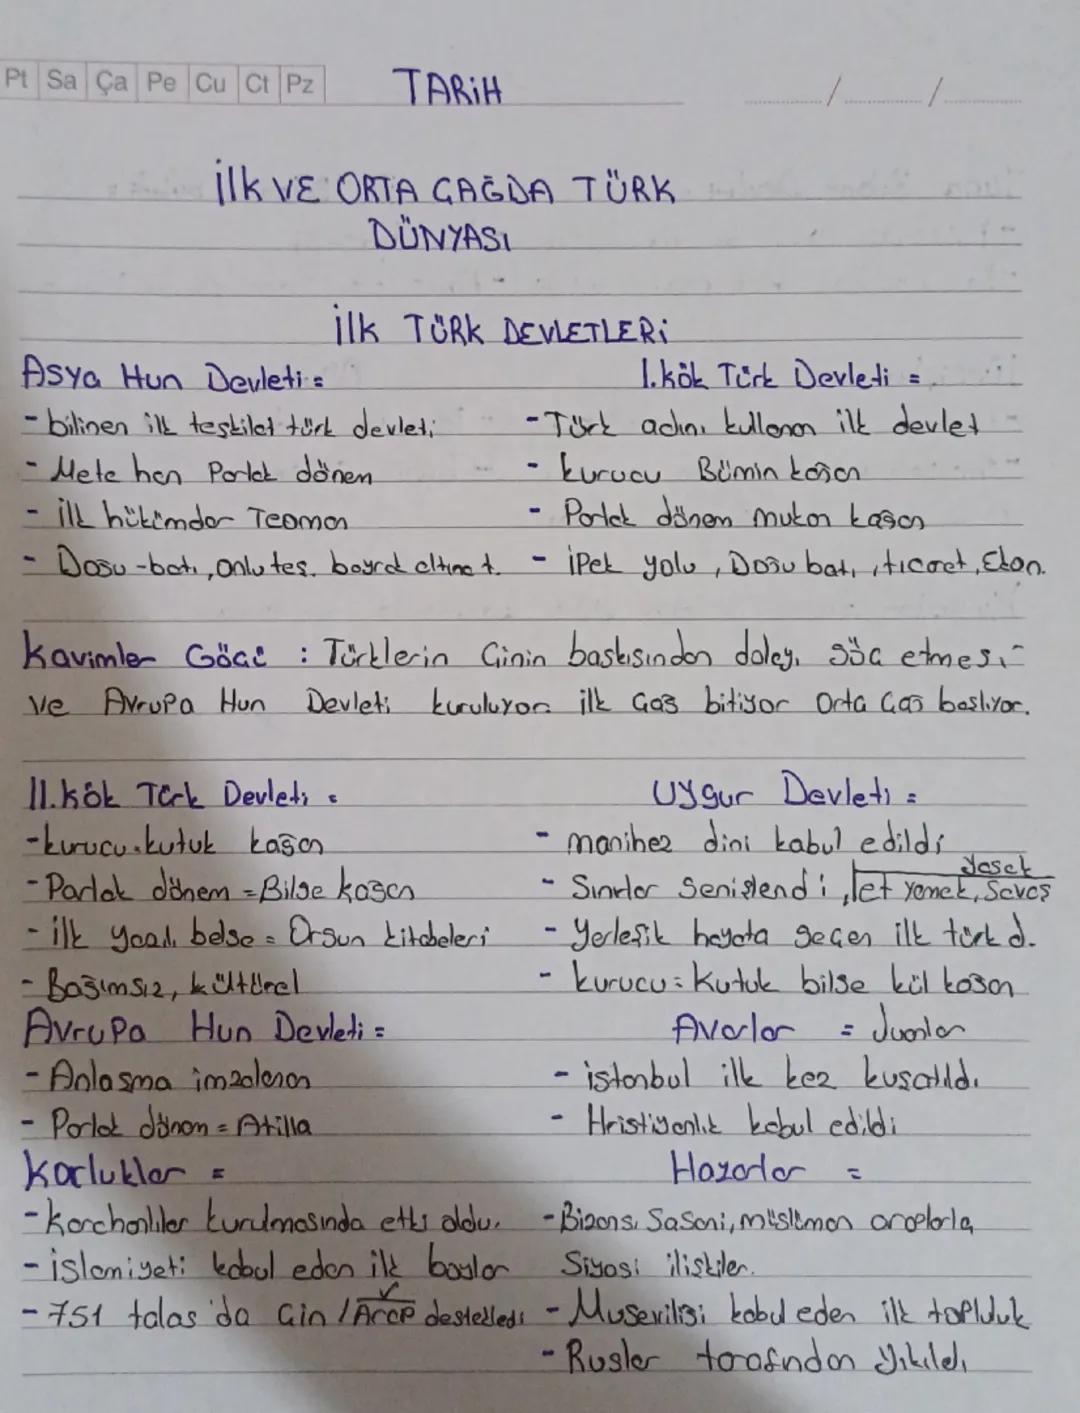 Pt Sa Ça Pe Cu Ct Pz
TARİH
/ /
İlk VE ORTA ÇAĞDA TÜRK
DÜNYASI
İlk TÜRK DEVLETLERİ
Asya Hun Devleti =
- bilinen ilk teşkilat türk devleti
- Mete han Parlak dönem
- ilk hükümdar Teoman
- Doğu-batı, onlu teş. bayrak altına t.
I. kök Türk Devleti =
- Türk adını kullanan ilk devlet
- kurucu Bümin kağan
- Parlak dönem mukan kağan
- İpek yolu, Doğu batı, ticaret, Ekon.
Kavimler Göçü : Türklerin Çinin baskısından dolayı göç etmesi
ve Avrupa Hun Devleti kuruluyor. ilk Çağ bitiyor Orta Çağ başlıyor.
II. kök Türk Devleti =
- kurucu. kutuk kağan
- Parlak dönem = Bilge kağan
- ilk yazılı belge = Orgun kitabeleri
- Bağımsız, kültürel
Uygur Devleti =
- manihez dini kabul edildi
- Sınırlar genişlendi, et yemek, Savaş yasak
- Yerleşik hayata geçen ilk türk d.
- kurucu = Kutuk bilge kül kağan
Avrupa Hun Devleti =
- Anlaşma imzalanan
- Parlak dönem = Atilla
Avarlar = Juanlar
- istanbul ilk kez kuşatıldı
- Hristiyanlık kabul edildi
Karluklar =
- karahanlılar kurulmasında etki oldu.
- islamiyeti kabul eden ilk boylar
- 751 talas'da Çin / Arap destekledi
Hazarlar =
- Bizans, Sasani, müslüman araplarla
Siyasi ilişkiler.
- Museviliği kabul eden ilk topluluk
- Ruslar tarafından yıkıldı